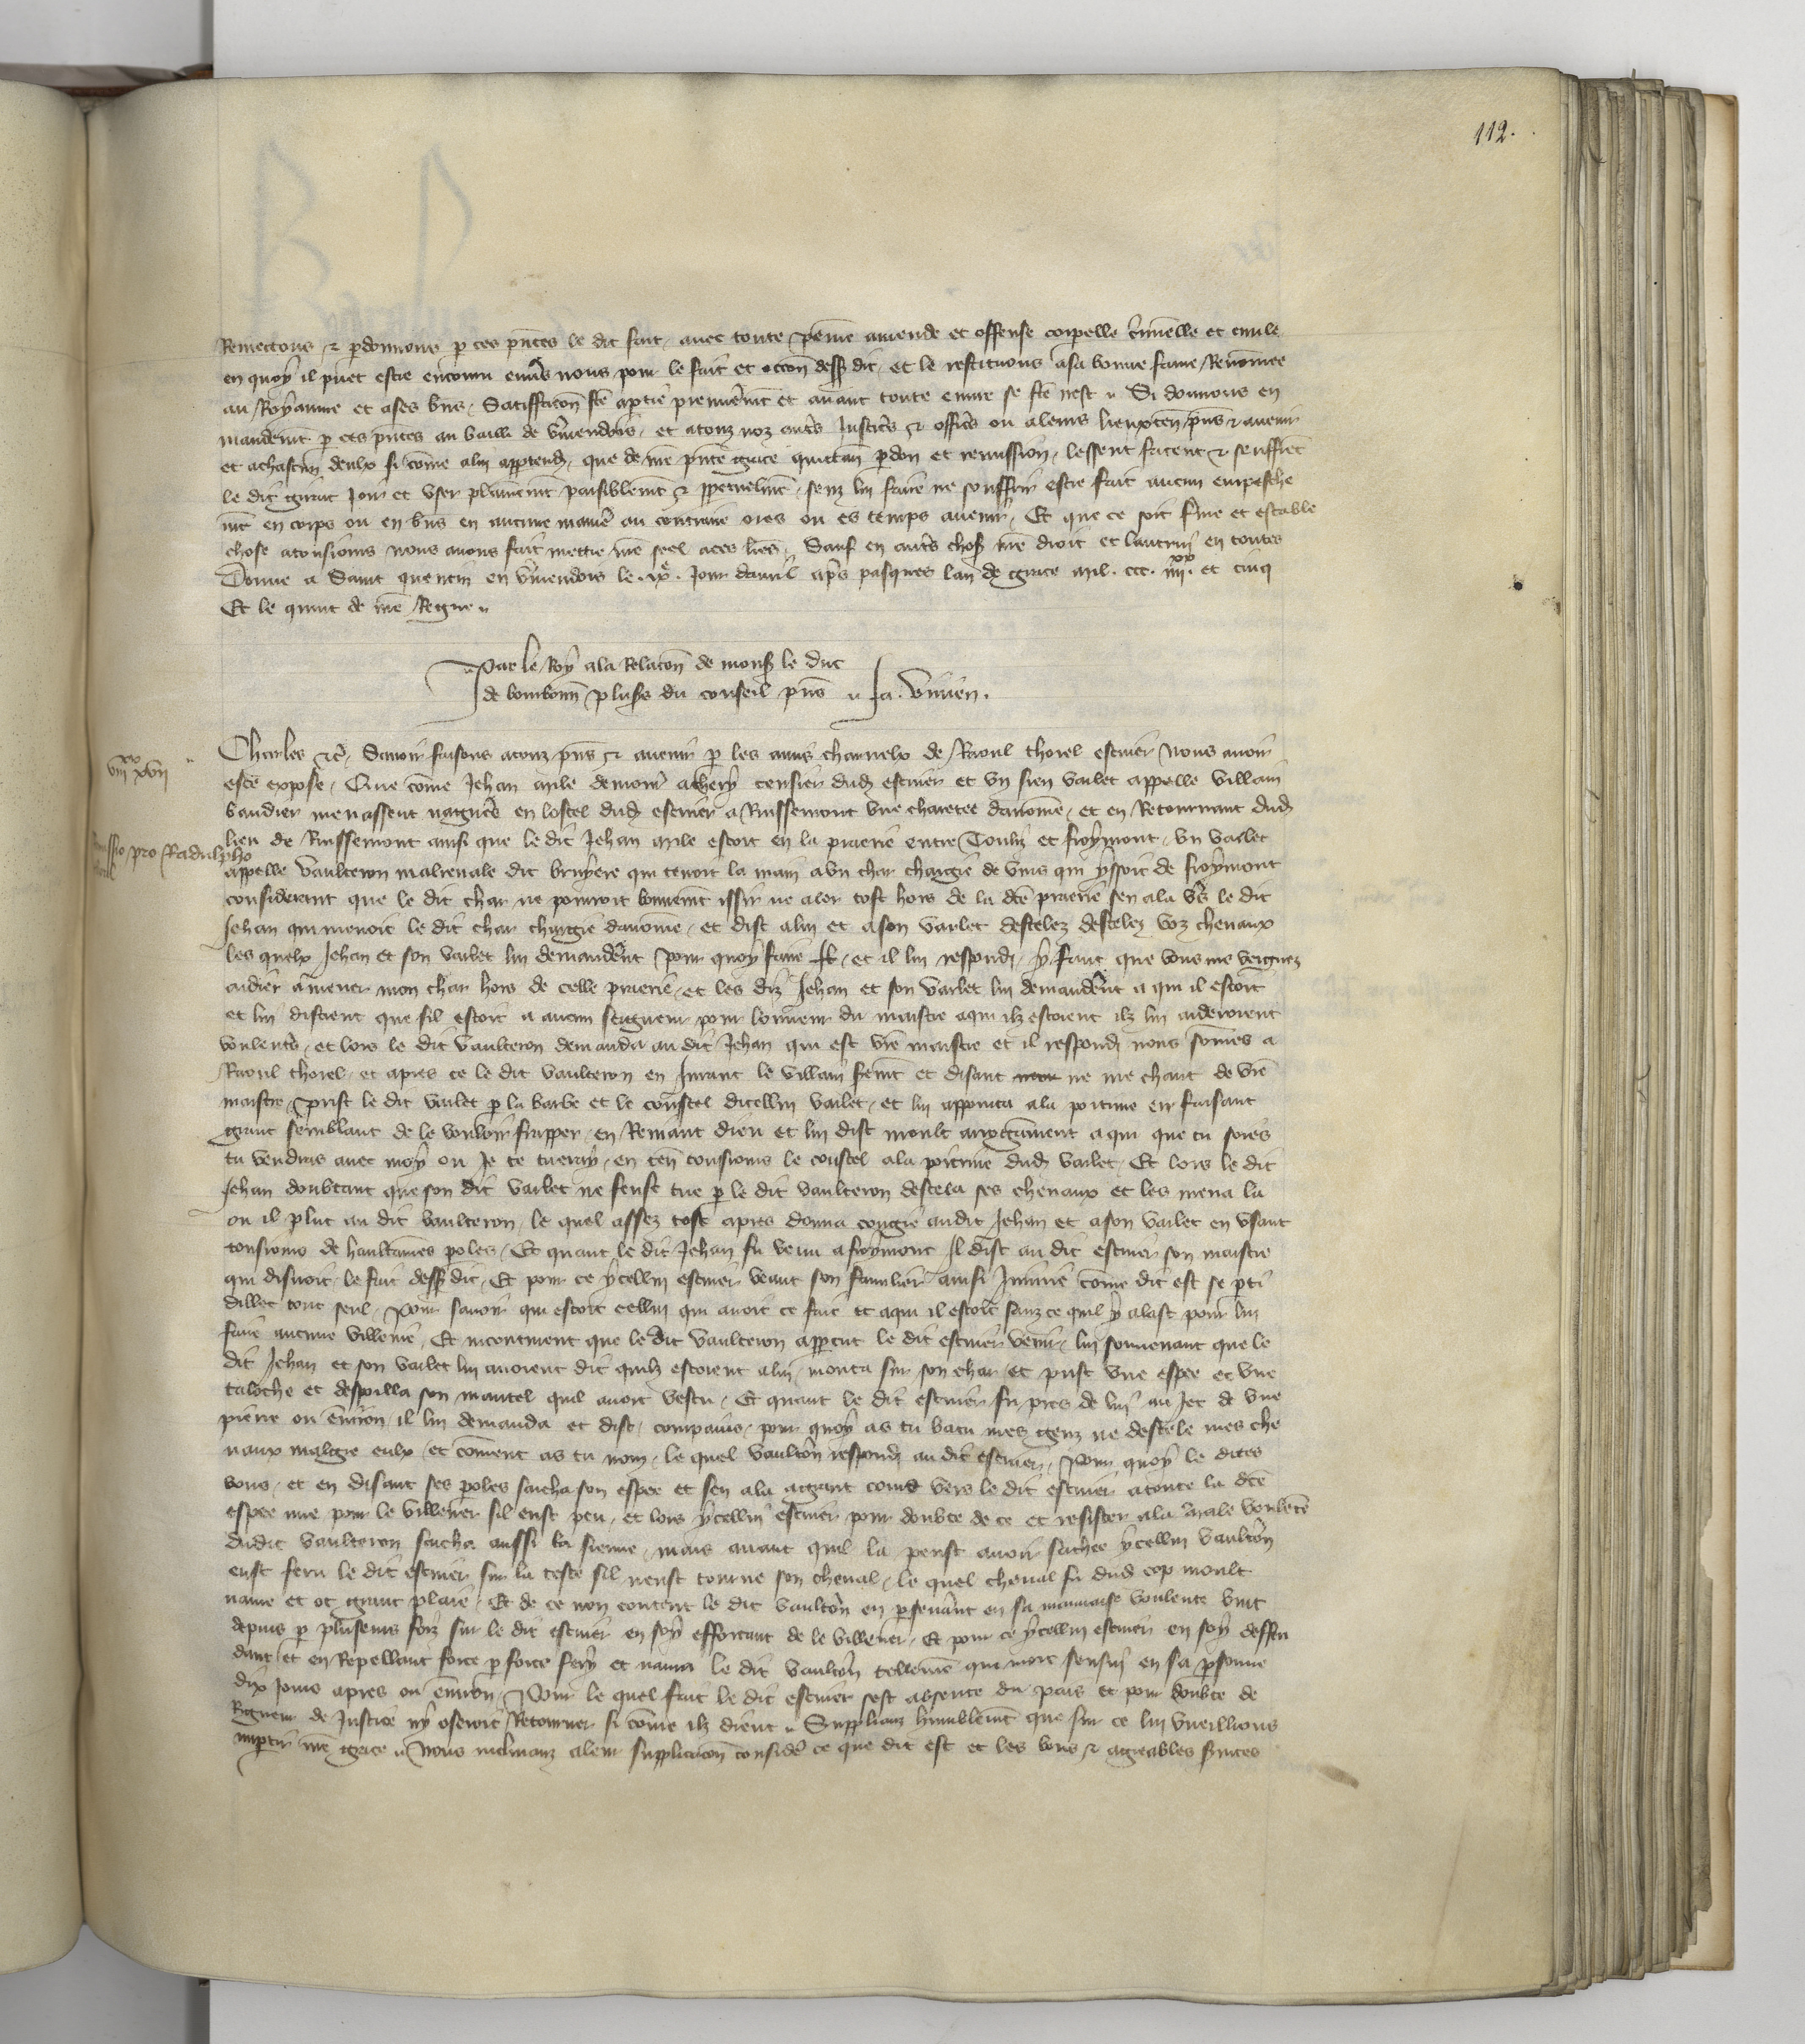 112.
Remettons & pardonnons p ces pñtes le dit fait, avec toute peine amende et offense corpelle criminelle et civile
en quoy il puet estre encouru envs nous pour le fait et occon dessus dit, et le restituons a sa bonne fame Renommee
au Royaume et a ses bns, Satisffaccon fce a partie premieremt et avant toute euvre se fce nest. Si donnons en
mandemt p ces pñtes au bailli de vermendois, et a touz noz autres Justiciers & officers ou a leurs lieuxten pñs & avenir
et a chascun deulx si côme a lui appartendra, que de nre pñte grace quittan pardon et remission, lessent facent & seuffret
le dit girart Joir et user plainemt paisiblemt & perpetuelmt, senz lui faire ne souffrir estre fait aucun empesche
mt en corps ou en bns en aucune maniere au contraire ores ou es temps avenir, Et que ce soit ferme et estable
chose a tousiours nous avons fait mettre nre seel a ces lres, Sauf en autres choses nre droit et lautrui en toutes
Donne a Saint quentin en vermendois le .ixe. Jour davril aprs pasques lan de grace mil. ccc. iiijxx. et cinq
Et le quint de nre Regne.
Par le Roy a la Relacon de mons le duc
de bourbonn plusrs du conseil pñs. Ja. vivien.
viixx xvii
Remissio pro Radulpho
thorel
Charles &c. Savoir faisons a touz pñs & avenir p les amis charnelx de Raoul thorel escuier Nous avoir
este expose, Que côme Jehan mile demorant a thery censier dud escuier et un sien varlet appelle Villain
baudier menassent nagueres en lostel dud escuier a Russemont une charetee davoine, et en Retournant dud
lieu de Russemont ainsi que le dit Jehan mile estoit en la praerie entre Toulis et froymont, un varlet
appelle Vaulteron malrenale dit bruyere qui tenoit la main a un char chargie de vins qui yssoit de froymont
considerant que le dit char ne pourroit bonnemt issir ne aler tost hors de la dce praerie sen ala vrs le dit
Jehan qui menoit le dit char chargie davoine, et dist a lui et a son varlet destelez destelez voz chevaux
les quelx Jehan et son varlet lui demanderent pour quoy faire, et il lui respondi, y faut que vous me veignez
aidier a mener mon char hors de celle praerie, et les diz Jehan et son varlet lui demanderent a qui il estoit
et lui distrent que sil estoit a aucun seigneur pour lonneur du maistre a qui ilz estoient ilz lui aideroient
voulentrs, et lors le dit vaulteron demanda au dit Jehan qui est vre maistre et il respondi nous sommes a
Raoul thorel, et apres ce le dit vaulteron en Jurant le villain sermt et disant ne me chaut de vre
maistre, Prist le dit varlet p la barbe et le coustel dicellui varlet, et lui appointa a la poitrine en faisant
grant semblant de le vouloir frapper, en Reniant dieu et lui dist moult arrogament a qui que tu soies
tu vendras avec moy ou Je te tueray, en ten tousiours le coustel a la poitrine dud varlet, Et lors le dit
Jehan doubtant que son dit varlet ne feust tue p le dit vaulteron destela ses chevaux et les mena la
ou il plut au dit vaulteron, le quel assez tost apres donna congie au dit Jehan et a son varlet en usant
tousiours de haultaines poles, Et quant le dit Jehan fu venu a froymont Il dist au dit escuier son maistre
qui disnoit, le fait dessus dit, Et pour ce ycellui escuier veant son familier ainsi Injurie côme dit est se pti
dillec tout seul, Pour savoir qui estoit cellui qui avoit ce fait et a qui il estoit sanz ce quil y alast pour lui
faire aucune villenie, Et incontinent que le dit vaulteron appercut le dit escuier venir, lui souvenant que le
dit Jehan et son varlet lui avoient dit quilz estoient a lui, monta sur son char, et prist une espee et une
taloche et despoilla son mantel quil avoit vestu, Et quant le dit escuier fu pres de lui au Jet de une
pierre ou environ, il lui demanda et dist, compains, pour quoy as tu batu mes genz ne destele mes che
vaux malgre eulx, et côment as tu nom, le quel vaultron respondi au dit escuier, Pour quoy le dites
vous, et en disant ses poles sacha son espee et sen ala a grant cours vers le dit escuier a toute la dce
espee nue pour le villener sil eust peu, et lors ycellui escuier pour doubte de ce et resister a la male voulente
dudit vaulteron sacha aussi la sienne, mais avant quil la peust avoir sachee ycellui vaultron
eust feru le dit escuier sur la teste sil neust tourne son cheval, le quel cheval fu dud cop moult
navre et ot grant plaie, Et de ce non content le dit vaultron en pseverant en sa mauvaise voulente vint
depuis p pluseurs foiz sur le dit escuier en soy efforcant de le villener, Et pour ce ycellui escuier en soy deffen
dant et en Repellant force p force fery et navra le dit vaultron tellemt que mort sensui en sa psonne
dix Jours apres ou environ, Pour le quel fait le dit escuier sest absente du pais et pour doubte de
Rigueur de Justice ny oseroit Retourner si côme ilz dient. Supplianz humblemt que sur ce lui vueillions
impartir nre grace. Nous inclinanz a leur supplicacion considere ce que dit est et les bons & agreables services